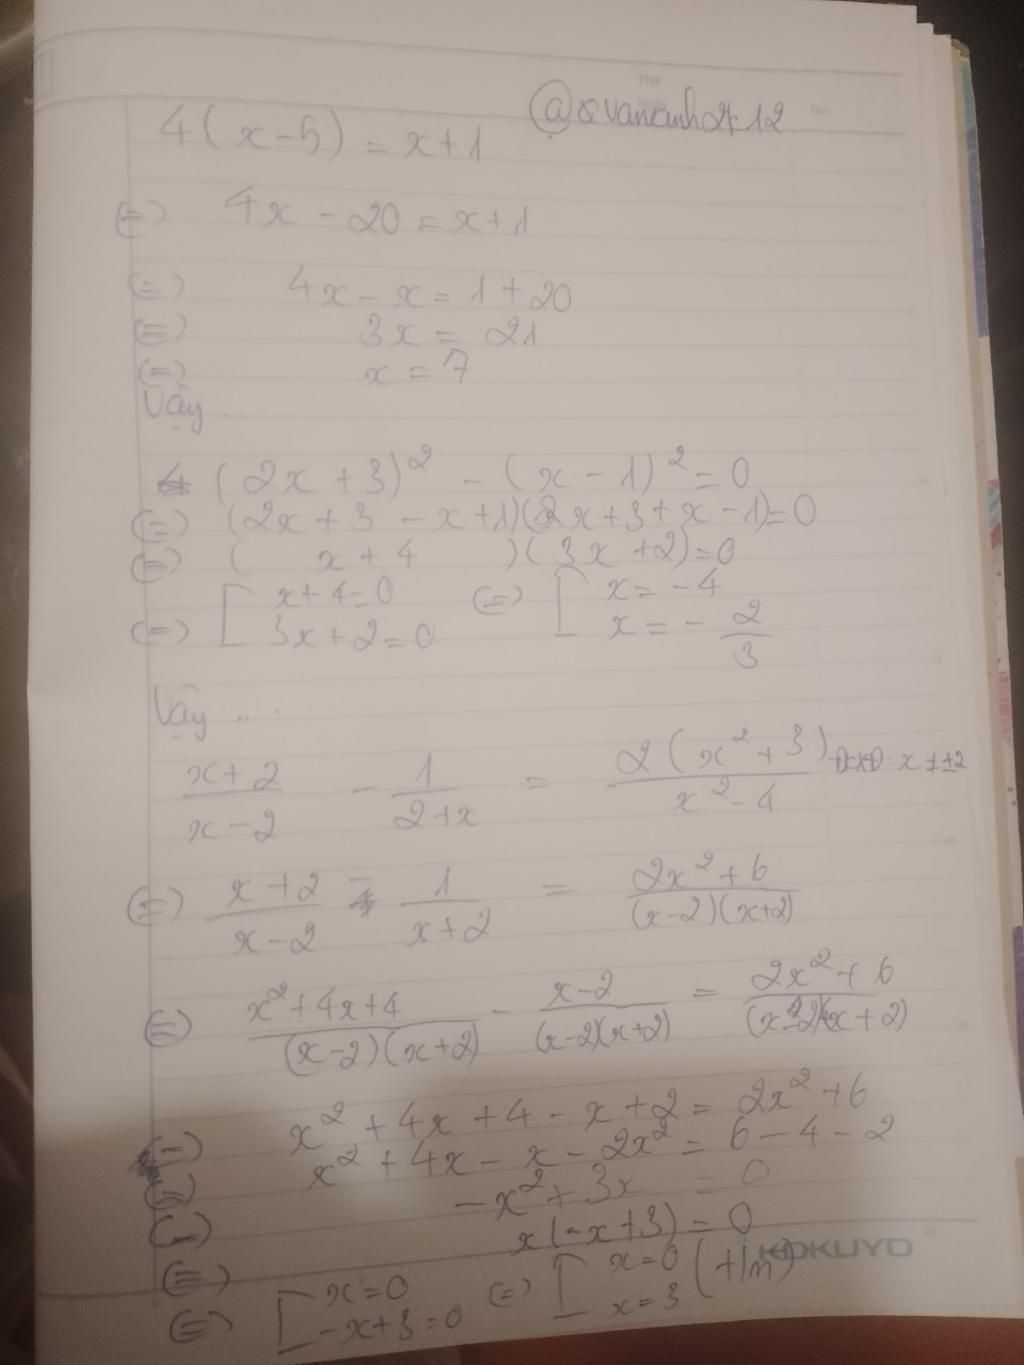 4(x-5) = x+1
(=) 4x - 20 = x+1
(=) 4x - x = 1 + 20
(=) 3x = 21
(=) x = 7
Vậy ..
(2x + 3)² - (x - 1)² = 0
(=) (2x + 3 - x + 1)(2x + 3 + x - 1) = 0
(=) ( x + 4 )(3x + 2) = 0
(=) [ x + 4 = 0 (=) [ x = -4
3x + 2 = 0 x = - 2/3
Vậy ...
(x+2)/(x-2) - 1/(2+x) = 2(x²+3)/(x²-4) ĐKXĐ: x ≠ ±2
(=) (x+2)/(x-2) - 1/(x+2) = (2x²+6)/((x-2)(x+2))
(=) (x²+4x+4)/((x-2)(x+2)) - (x-2)/((x-2)(x+2)) = (2x²+6)/((x-2)(x+2))
(=) x² + 4x + 4 - x + 2 = 2x² + 6
(=) x² + 4x - x - 2x² = 6 - 4 - 2
(=) -x² + 3x = 0
(=) x(-x+3) = 0
KOKUYO
(=) [ x = 0 (=) [ x = 0 (t/m)
-x+3 = 0 x = 3